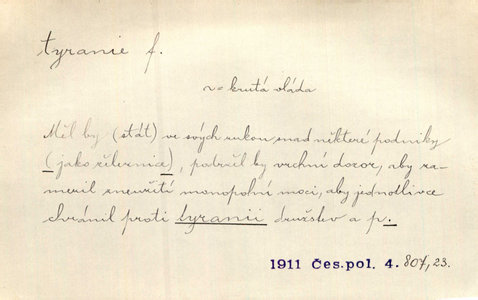 tyranie f.
~ = krutá vláda
Měl by (stát) ve svých rukou snad některé podniky
(jako železnice), podržel by vrchní dozor, aby za-
mezil zneužití monopolní moci, aby jednotlivce
chránil proti tyranii družstev a p.
1911 Čes. pol. 4. 807, 23.